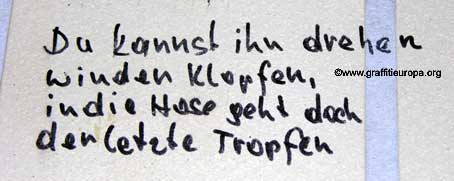 Du kannst ihn drehen
winden Klopfen,
©www.graffitieuropa.org
in die Hose geht doch
der letzte Tropfen